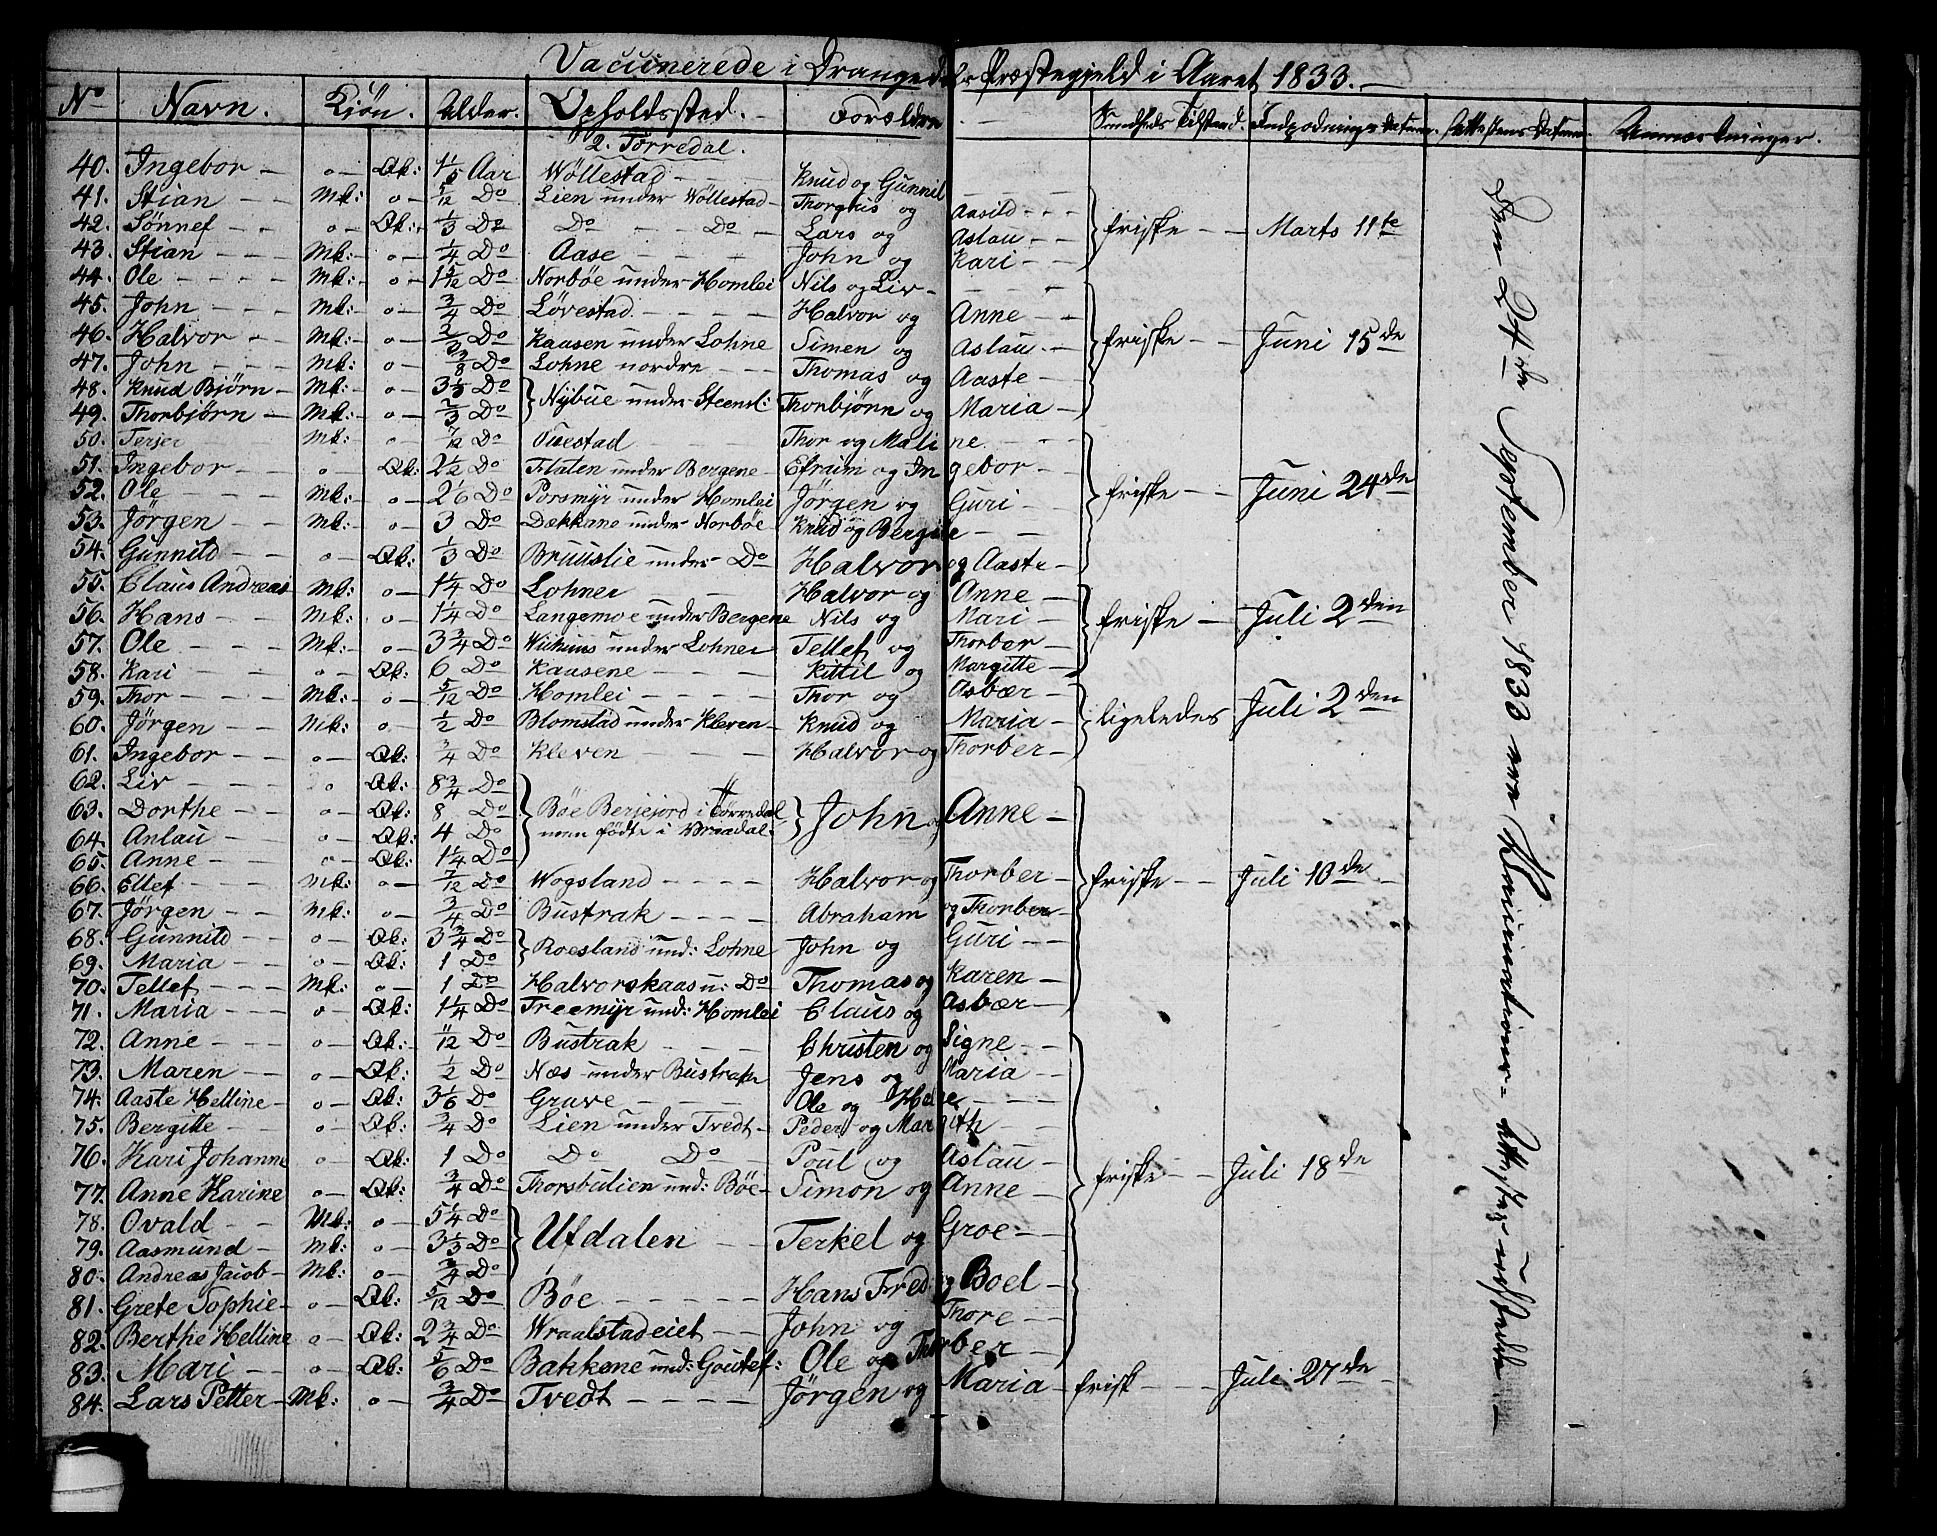 Vaccinerede i Drangedals Præstegjeld i Aaret 1833.
No Navn. Kjön. Alder. Opholdssted. Forældre Sundheds Tilstand. Indpodnings Datum. Attestens Datum. Anmærkninger.
2. Törredal.
40. Ingebor - o - Qk: 1 1/5 Aar Wöllestad - Knud og Gunnil
41. Stian - Mk: o - 5/12 Do Lien under Wöllestad - Thorgius og Aasild
42. Sönnef - o - Qk: 1/3 Do Do Do Lars og Aslau - friske - Marts 11te
43. Stian - Mk: o - 1/4 Do Aase - John og Kari
44. Ole - Mk: o - Do Norböe under Homlei Nils og Liv
45. John - Mk: o - 3/4 Do Lövestad - Halvor og Anne
46. Halvor - Mk: o - 2/3 Do Kaasen under Lohne Simen og Aslau - friske - Juni 15de
47. John - Mk: o - 3/8 Do Lohne nordre - Thomas og Aaste
48. Knud Björn - Mk: o - 3 1/3 Do Nybue under Steensl: Thorbjönn og Maria
49. Thorbjörn - Mk: o - 2/3 Do
50. Terjer Mk: o - 7/12 Do Vuestad Thor og Maline
51. Ingebor - o - Qk: 2 1/2 Do Flaten under Bergene - Efraim og Ingebor
52. Ole - Mk: o - 2 1/6 Do Porsmyr under Homlei Jörgen og Guri - friske - Juni 24de
53. Jörgen - Mk: o - 3 Do Dekkane under Norböe - Knud og Bergite
54. Gunnild - o - Qk: 1/3 Do Bruuslie under Do Halvor og Aaste
55. Claus Andreas Mk: o - 1 1/4 Do Lohner Halvor og Anne
56. Hans - Mk: o - 1 1/4 Do Langemoe under Bergene Nils og Mari - friske - Juli 2den
57. Ole - Mk: o - 3 3/4 Do under Lohner Tellef og Thorber
58. Kari - o - Qk: 6 Do Kaasene - Kittil og Margitte
59. Thor - Mk: o - 5/12 Do Homlei - Thor og Asbær
60. Jörgen - Mk: o 1/2 Do Blomstad under Kleven - Knud og Maria - ligeledes Juli 2den
61. Ingebor - o - Qk: 3/4 Do Kleven Halvor og Thorber
62. Liv - o Qk: 8 3/4 Do
63. Dorthe - o - Qk: 8 Do Böe Berjejord i Törredal John og Anne
64. Anlau - o - Qk: 4 Do men födte i Vraadal
65. Anne - o - Qk: 1 1/4 Do
66. Ellef - Mk: o - 7/12 Do Wogsland - Halvor og Thorber - friske - Juli 10de
67. Jörgen - Mk: o - 3/4 Do Bustrak - Abraham og Thorber
68. Gunnild - o - Qk: 3 3/4 Do Roesland und: Lohne John og Guri
69. Maria - o - Qk: 1 Do
70. Tellef - Mk: o - 1 Do Halvorskaas u: Do Thomas og Karen
71. Maria - o - Qk: 1 1/4 Do Treemyr und: Homlei Claus og Asbær
72. Anne - o - Qk: 11/12 Do Bustrak - Christen og Signe
73. Maren - o - Qk: 1/2 Do Næs under Bustrak Jens og Maria
74. Aaste Helline - o - Qk: 3 1/6 Do Grave - Ole og Helje
75. Bergitte - o - Qk: 3/4 Do Lien under Tvedt - Peder og Margith
76. Kari Johanne o - Qk: 1 Do Do Do Poul og Aslau - friske - Juli 18de
77. Anne Karine o - Qk: 3/4 Do Thorsbulien und: Böe - Simon og Anne
78. Ovald - Mk: o - 5 1/4 Do Ufdalen - Terkel og Groe
79. Aasmund - Mk: o - 3 1/3 Do
80. Andreas Jacob - Mk: o - 3/4 Do
81. Grete Sophie - o - Qk: 5/12 Do Böe - Hans Fred: og Boel
82. Berthe Helline o - Qk: 2 3/4 Do Wraalstadeiet - John og Thore
83. Mari - o - Qk: 5/6 Do Bakkene und: Goutef: Ole og Thorber
84. Lars Petter - Mk: o - 3/4 Do Tvedt - Jörgen og Maria - frisk - Juli 27de
Den 24de September 1833 Vaccinations-Attester udstedte.